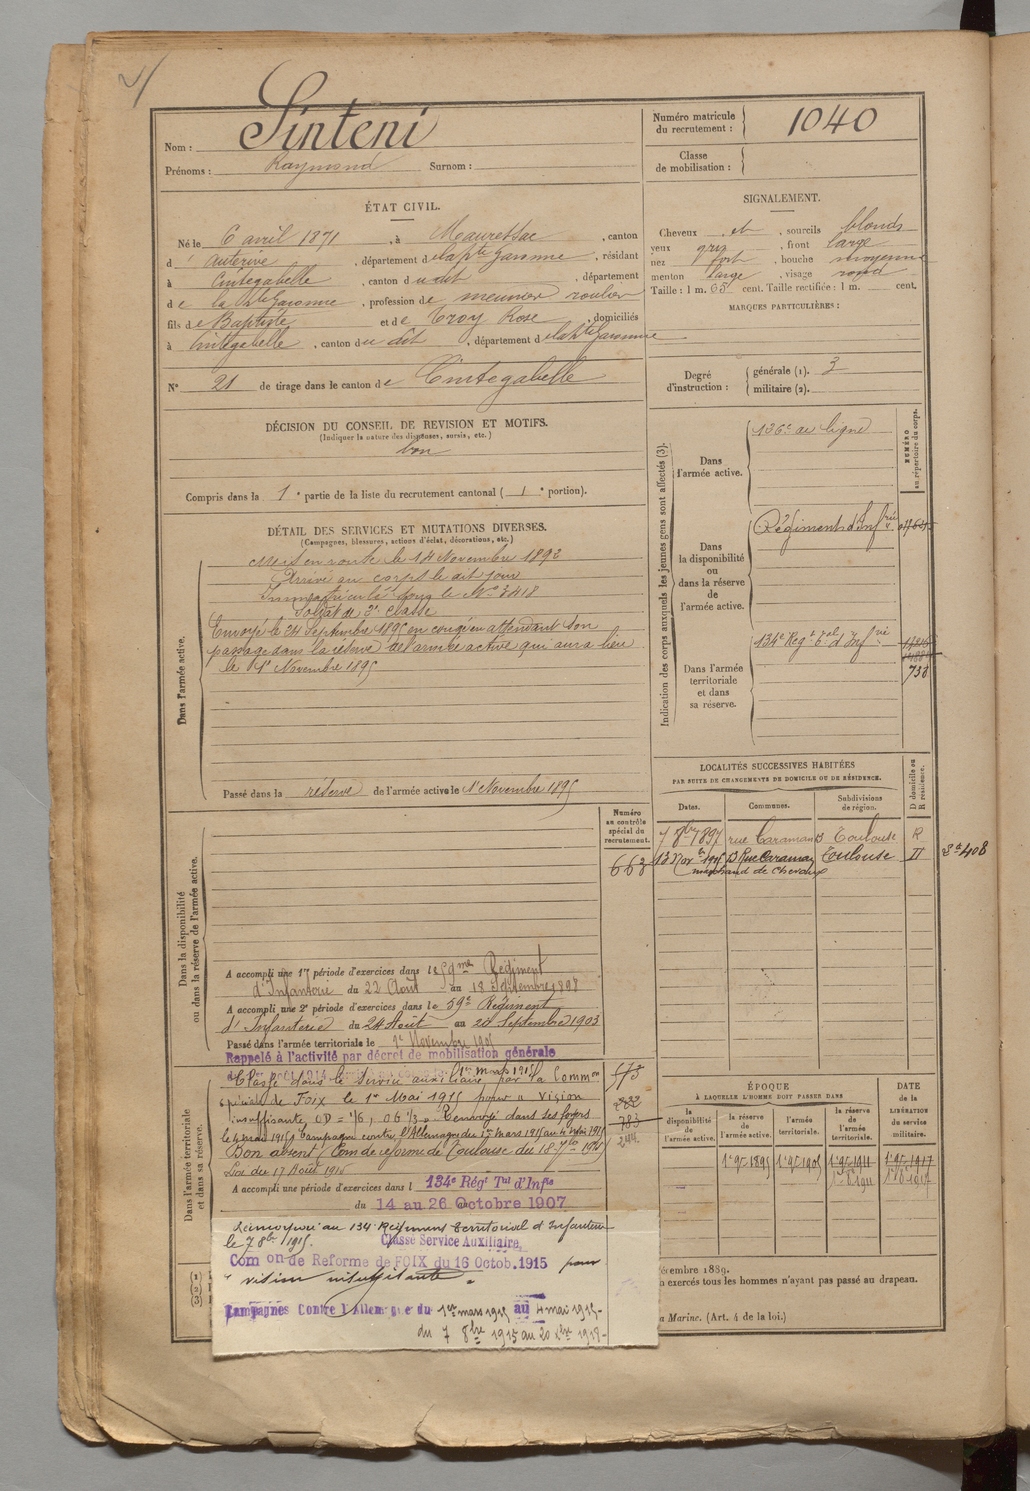 Nom : Sinteni
Prénoms : Raymond Surnom :
Numéro matricule du recrutement : 1040
Classe de mobilisation :
ÉTAT CIVIL.
Né le 6 avril 1871, à Mauressac, canton
d'auterive, département de la hte Garonne, résidant
à Cintegabelle, canton du dit, département
de la hte Garonne, profession de meunier roulier
fils de Baptiste et de Croy Rose, domiciliés
à Cintegabelle, canton du dit, département de la hte Garonne
N° 21 de tirage dans le canton de Cintegabelle
SIGNALEMENT.
Cheveux et, sourcils blonds
yeux gris, front large
nez fort, bouche moyenne
menton large, visage rond
Taille : 1 m. 65 cent. Taille rectifiée : 1 m. cent.
MARQUES PARTICULIÈRES :
Degré d'instruction : générale (1). 3
militaire (2).
DÉCISION DU CONSEIL DE REVISION ET MOTIFS.
(Indiquer la nature des dispenses, sursis, etc.)
bon
Compris dans la 1e partie de la liste du recrutement cantonal (1e portion).
DÉTAIL DES SERVICES ET MUTATIONS DIVERSES.
(Campagnes, blessures, actions d'éclat, décorations, etc.)
Dans l'armée active.
Mis en route le 14 Novembre 1892
Arrivé au corps le dit jour
Immatriculé sous le N° 3418
Soldat de 2e classe
Envoyé le 24 Septembre 1895 en congé en attendant son
passage dans la réserve de l'armée active qui aura lieu
le 1er Novembre 1895
Passé dans la réserve de l'armée active le 1er Novembre 1895
Indication des corps auxquels les jeunes gens sont affectés (3).
NUMÉRO au répertoire du corps.
Dans l'armée active.
136e de ligne
Dans la disponibilité ou dans la réserve de l'armée active.
Régiment d'Infrie
Dans l'armée territoriale et dans sa réserve.
134e Régt Tal d'Infrie
738
LOCALITÉS SUCCESSIVES HABITÉES
PAR SUITE DE CHANGEMENTS DE DOMICILE OU DE RÉSIDENCE.
Dates. Communes. Subdivisions de région. D domicile ou R résidence.
7 8bre 1897 rue Caraman Toulouse R
13 Nov 13 Rue Caraman Toulouse
marchand de chevaux
2a 408
Numéro au contrôle spécial du recrutement.
663
Dans la disponibilité ou dans la réserve de l'armée active.
A accompli une 1re période d'exercices dans le 59me Régiment
d'Infanterie du 22 Août au 18 Septembre 1898
A accompli une 2e période d'exercices dans le 59e Régiment
d'Infanterie du 24 Août au 20 Septembre 1903
Passé dans l'armée territoriale le 1er Novembre 1905
Rappelé à l'activité par décret de mobilisation générale
1er mars 1915
Dans l'armée territoriale et dans sa réserve.
Classé dans le service auxiliaire par la Common
spéciale de Foix le 1er Mai 1915 pour " Vision
insuffisante, OD = 1/6, OG 1/3 " Renvoyé dans ses foyers
le 4 mai 1915 Campagne contre l'Allemagne du 1er mars 1915 au 4 mai 1915
Bon absent / Com de réforme de Toulouse du 18 7bre 1915
Loi du 17 Août 1915
A accompli une période d'exercices dans l 134e Régt Tal d'Infie
du 14 au 26 Octobre 1907
Réincorporé au 134 Régiment Territorial d'Infanterie
le 7 8bre 1915.
Classé Service Auxiliaire
Comon de Reforme de FOIX du 16 Octob. 1915 pour
" vision insuffisante "
Campagnes Contre l'Allemagne du 1er mars 1915 au 4 mai 1915-
du 7 8bre 1915 au 20
783
244
ÉPOQUE
À LAQUELLE L'HOMME DOIT PASSER DANS
la disponibilité de l'armée active. la réserve de l'armée active. l'armée territoriale. la réserve de l'armée territoriale.
DATE de la LIBÉRATION du service militaire.
1er 9bre 1895 1er 9bre 1905 1er 9bre 1911 1er 9bre 1917
écembre 1889.
n exercés tous les hommes n'ayant pas passé au drapeau.
a Marine. (Art. 4 de la loi.)
(1)
(2)
(3)